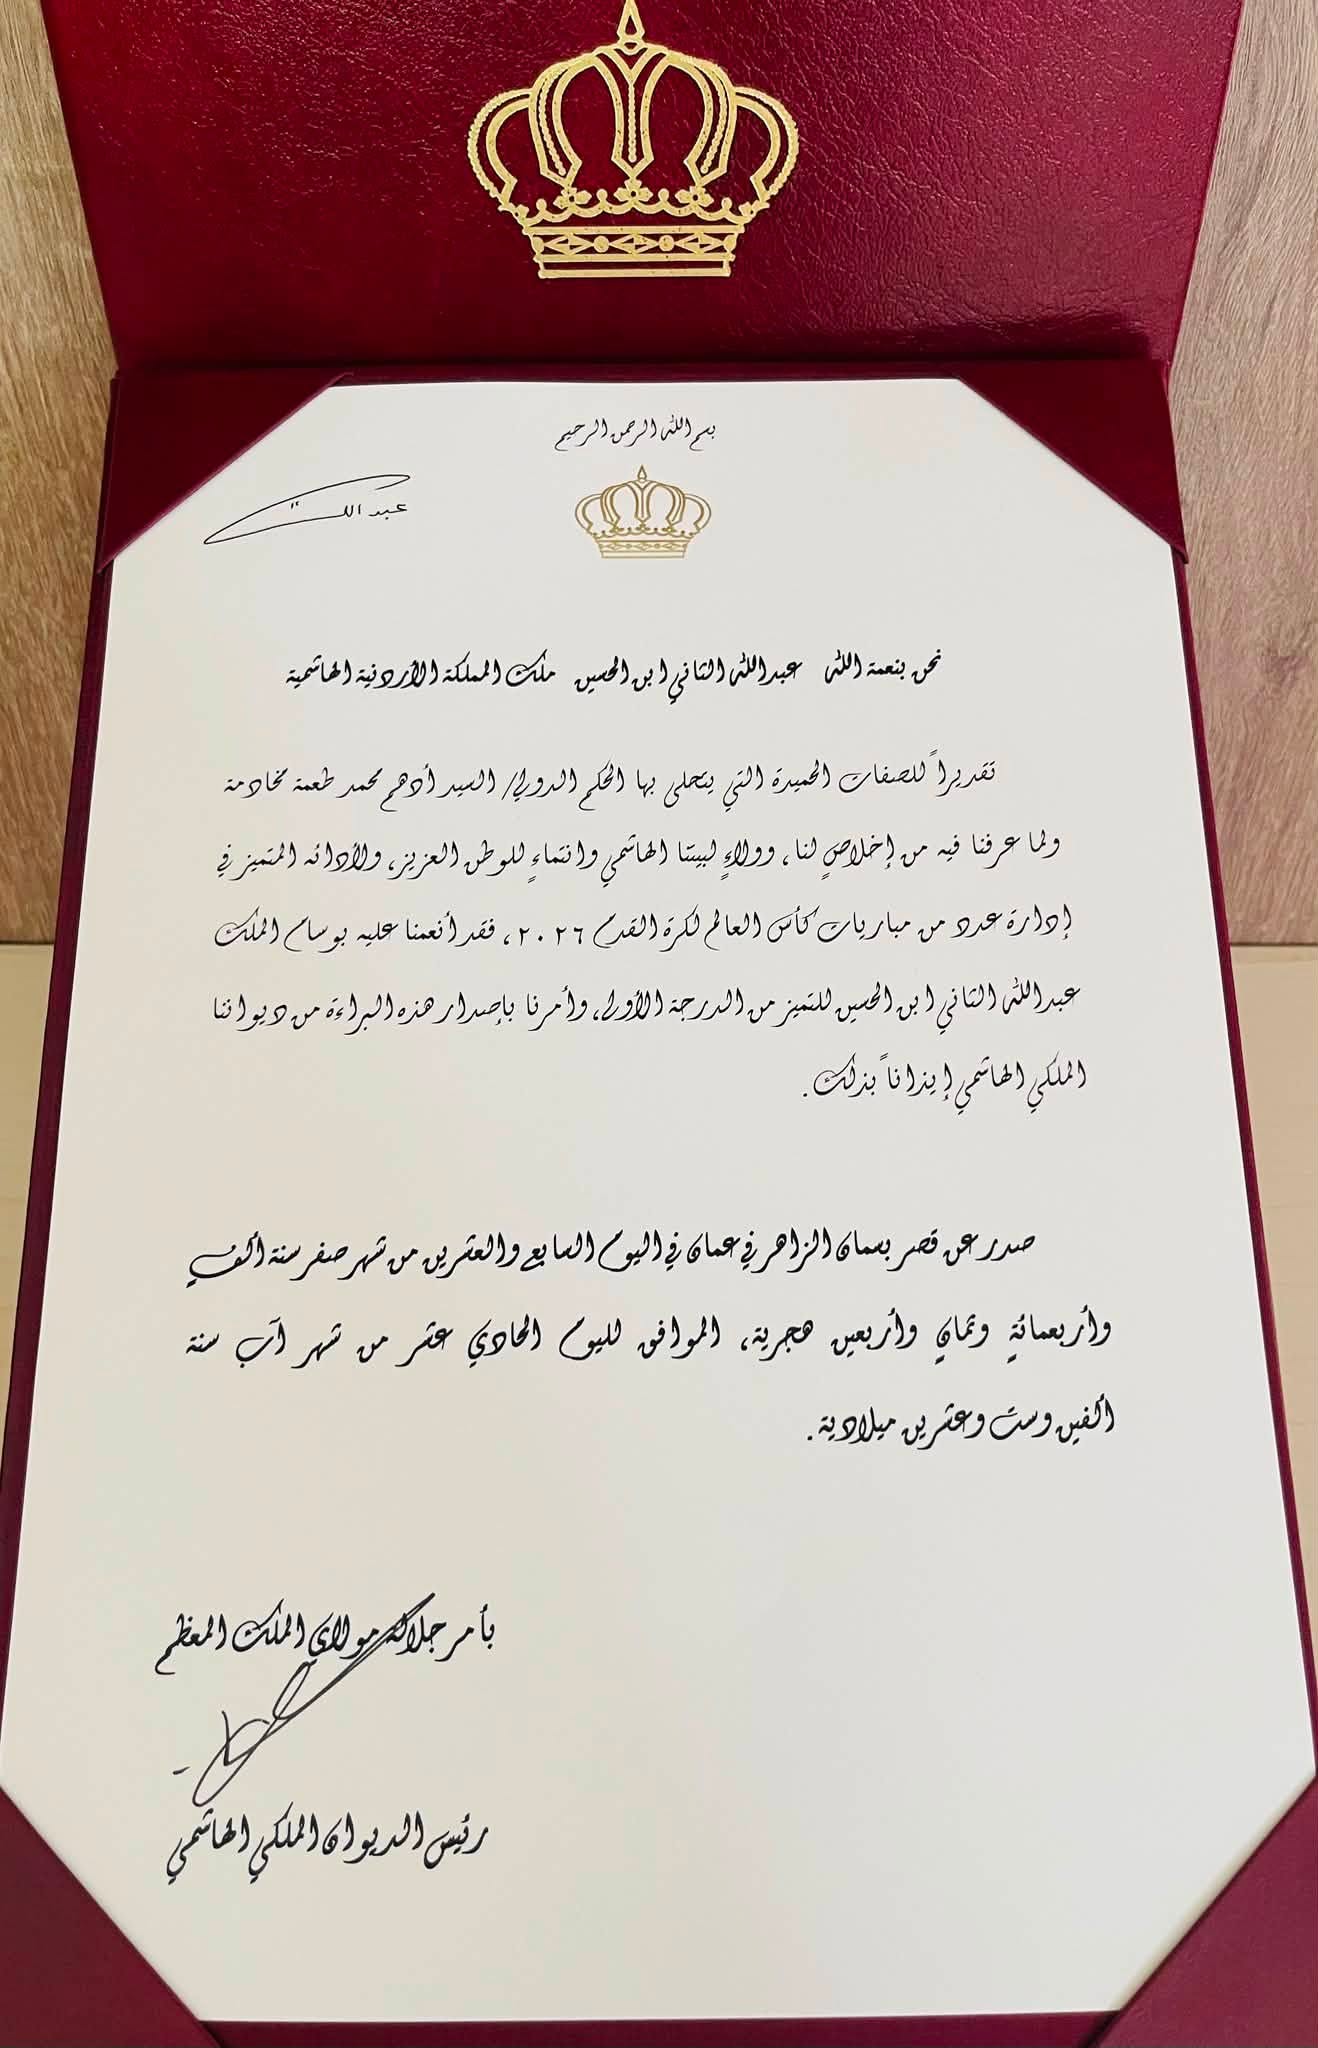 بسم الله الرحمن الرحيم
عبدالله
نحن بنعمة الله عبدالله الثاني ابن الحسين ملك المملكة الأردنية الهاشمية
تقديراً للصفات الحميدة التي يتحلى بها الحكم الدولي/ السيد أدهم محمد طعمة مخادمة
ولما عرفنا فيه من إخلاصٍ لنا، وولاءٍ لبيتنا الهاشمي وانتماءٍ للوطن العزيز، ولأدائه المتميز في
إدارة عدد من مباريات كأس العالم لكرة القدم ٢٠٢٦، فقد أنعمنا عليه بوسام الملك
عبدالله الثاني ابن الحسين للتميز من الدرجة الأولى، وأمرنا بإصدار هذه البراءة من ديواننا
الملكي الهاشمي إيذاناً بذلك.
صدر عن قصر بسمان الزاهر في عمان في اليوم السابع والعشرين من شهر صفر سنة ألفٍ
وأربعمائةٍ وثمانٍ وأربعين هجرية، الموافق لليوم الحادي عشر من شهر آب سنة
ألفين وست وعشرين ميلادية.
بأمر جلالة مولاي الملك المعظم
رئيس الديوان الملكي الهاشمي